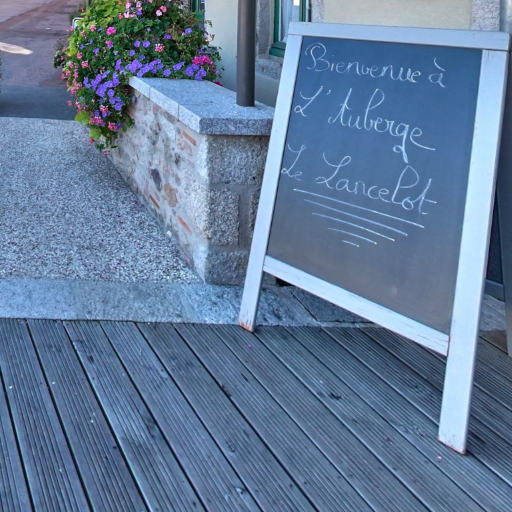 Bienvenue à
L'Auberge
Le Lancelot